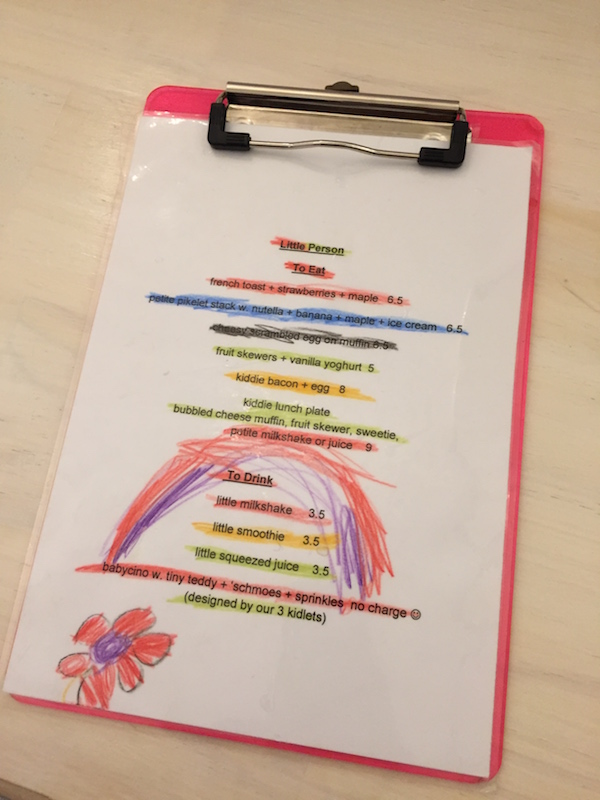 Little Person
To Eat
french toast + strawberries + maple 6.5
petite pikelet stack w. nutella + banana + maple + ice cream 6.5
cheesy scrambled egg on muffin 6.5
fruit skewers + vanilla yoghurt 5
kiddie bacon + egg 8
kiddie lunch plate
bubbled cheese muffin, fruit skewer, sweetie,
petite milkshake or juice 9
To Drink
little milkshake 3.5
little smoothie 3.5
little squeezed juice 3.5
babycino w. tiny teddy + 'schmoes + sprinkles no charge ☺
(designed by our 3 kidlets)